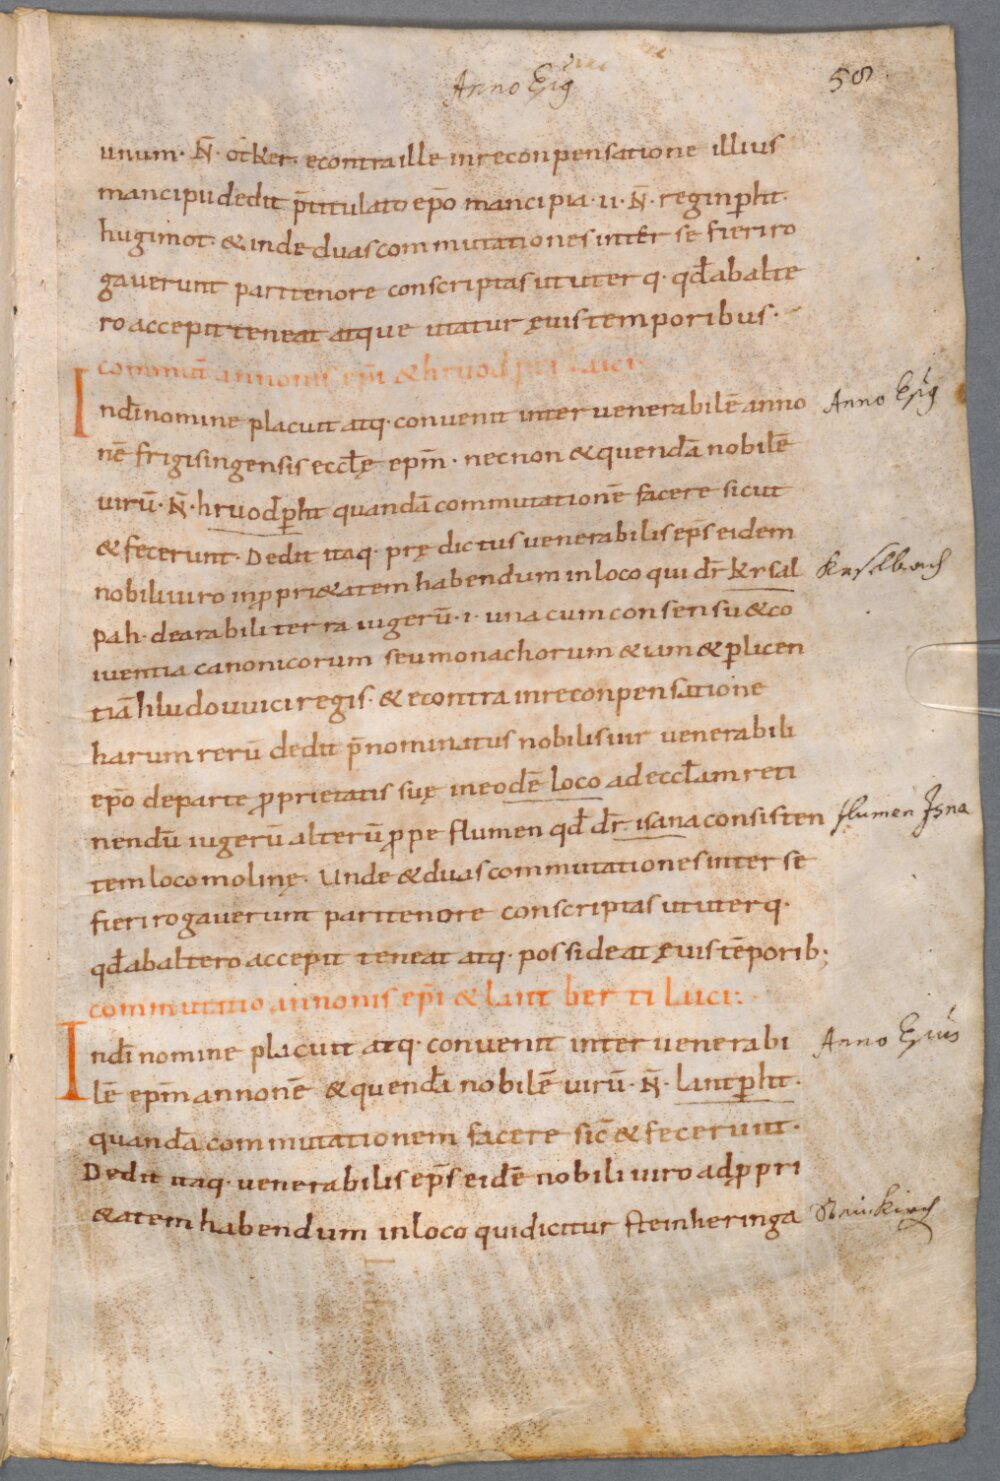 Anno Ep̄ig
58
unum· N̄· otker· econtra ille in reconpensatione illius
mancipii dedit p̄titulato ep̄o mancipia· ii· N̄· reginꝑht·
hugimot· & inde duas commutationes inter se fieri ro
gaverunt pari tenore conscriptas ut uterq· qđ ab alte
ro accepit teneat atque utatur ęvis temporibus·
commut̄ annonis ep̄i & hruodꝑti laici·
In dī nomine placuit atq· convenit inter venerabilē anno
nē frigisingensis eccłę ep̄m· necnon & quendā nobilē
virū· N̄· hruodꝑht quandā commutationē facere sicut
& fecerunt· Dedit itaq· prędictus venerabilis ep̄s eidem
nobili viro in ꝓpri&atem habendum in loco qui dr̄ kysal
pah· de arabili terra iugerū· i· una cum consensu & co
iventia canonicorum seu monachorum & iam & ꝑ licen
tiā hludouuici regis· & econtra in reconpensatione
harum rerū dedit p̄nominatus nobilis vir venerabili
ep̄o de parte ꝓprietatis suę in eodē loco ad eccłam reti
nendū iugerū alterū ꝓpe flumen qđ dr̄ isana consisten
tem loco molinę· Unde & duas commutationes inter se
fieri rogaverunt pari tenore conscriptas ut uterq·
qđ ab altero accepit teneat atq· possideat ęvis tēporib;
commutatio annonis ep̄i & lantberti laici:·
In dī nomine placuit atq· convenit inter venerabi
lē ep̄m annonē & quendā nobilē virū· N̄· lantꝑht·
quandā commutationem facere sic̄ & fecerunt·
Dedit itaq· venerabilis ep̄s eidē nobili viro ad ꝓpri
&atem habendum in loco qui dicitur steinheringa
Anno Ep̄ig
Keselbach
flumen Isna
Anno Ep̄ius
Steinkirch